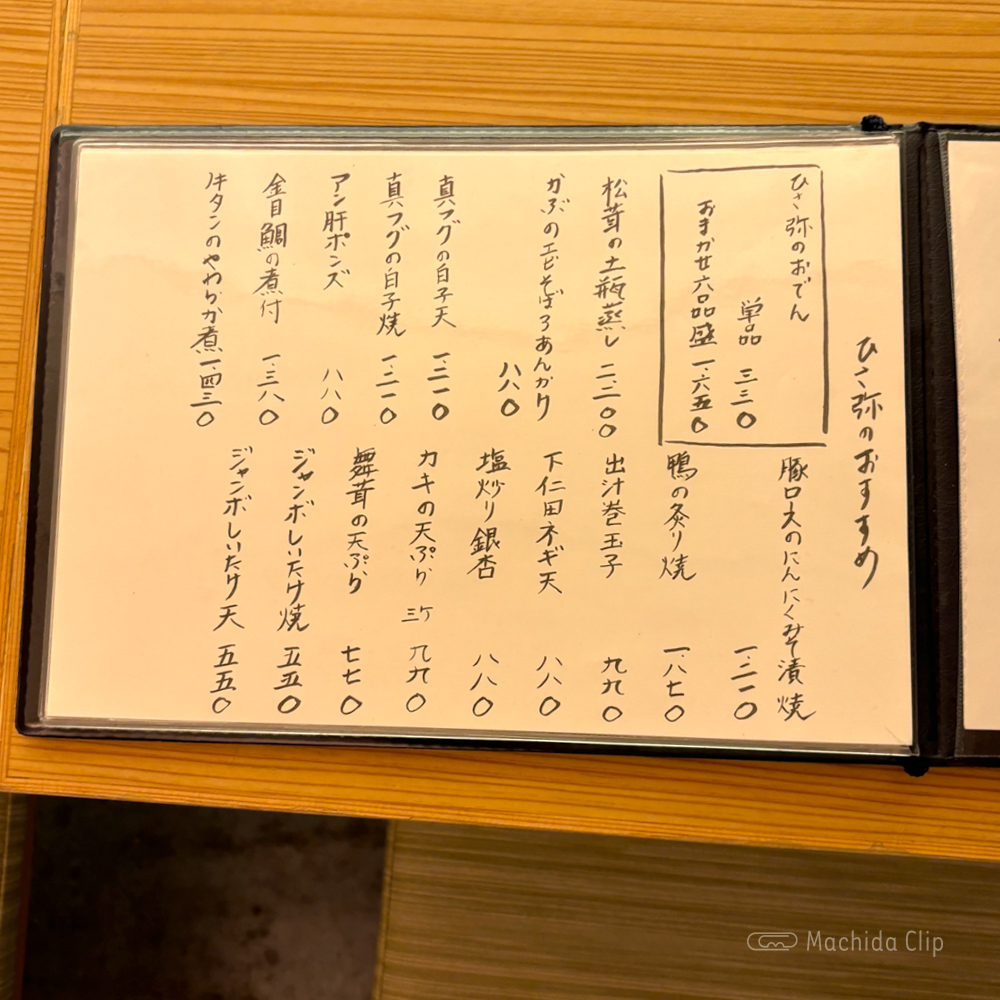 ひさ弥のおすすめ
ひさ弥のおでん
単品 三三〇
おまかせ六品盛 一、六五〇
松茸の土瓶蒸し 二二〇〇
かぶのエビそぼろあんかけ
八八〇
真フグの白子天 一、二一〇
真フグの白子焼 一、二一〇
アン肝ポンズ 八八〇
金目鯛の煮付 一、三八〇
牛タンのやわらか煮 一、四三〇
豚ロースのにんにくみそ漬焼
一、二一〇
鴨の炙り焼 一、八七〇
出汁巻玉子 九九〇
下仁田ネギ天 八八〇
塩炒り銀杏 八八〇
カキの天ぷら 三ケ 九九〇
舞茸の天ぷら 七七〇
ジャンボしいたけ焼 五五〇
ジャンボしいたけ天 五五〇
Machida Clip